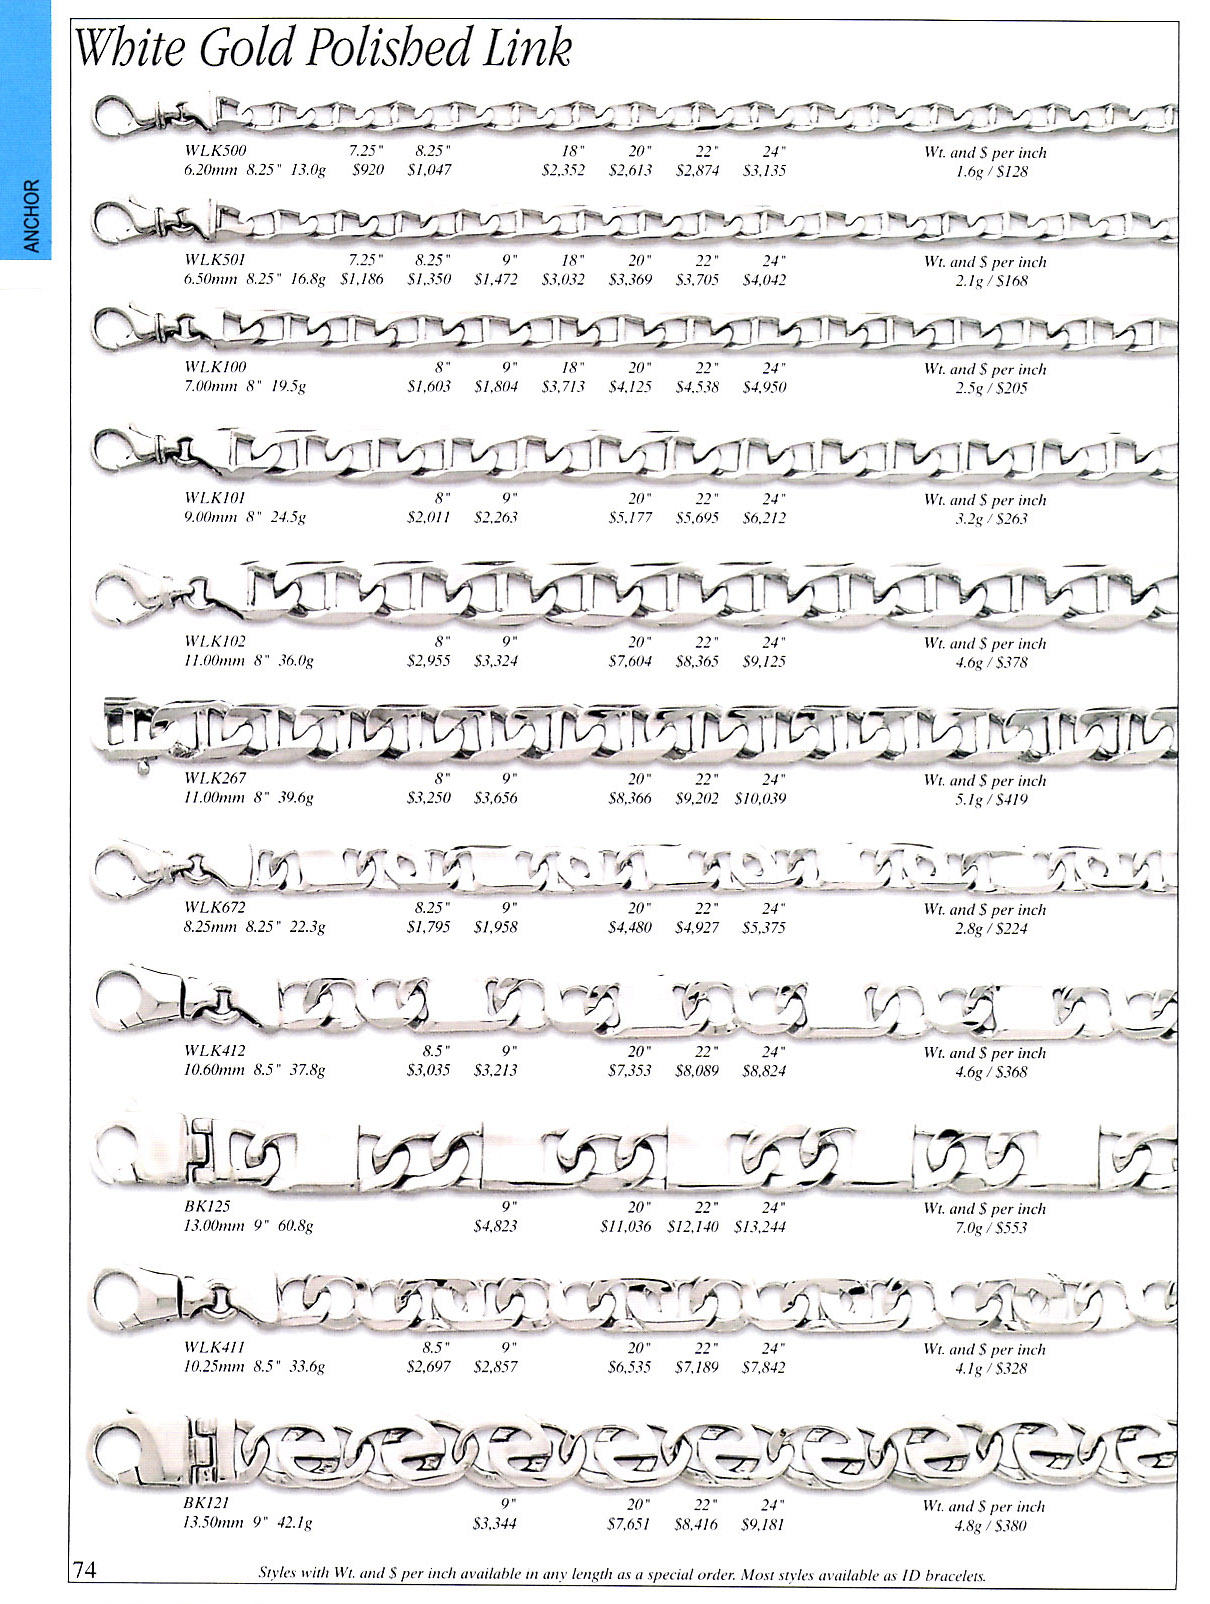 White Gold Polished Link
ANCHOR
WLK500 7.25" 8.25" 18" 20" 22" 24" Wt. and $ per inch
6.20mm 8.25" 13.0g $920 $1,047 $2,352 $2,613 $2,874 $3,135 1.6g / $128
WLK501 7.25" 8.25" 9" 18" 20" 22" 24" Wt. and $ per inch
6.50mm 8.25" 16.8g $1,186 $1,350 $1,472 $3,032 $3,369 $3,705 $4,042 2.1g / $168
WLK100 8" 9" 18" 20" 22" 24" Wt. and $ per inch
7.00mm 8" 19.5g $1,603 $1,804 $3,713 $4,125 $4,538 $4,950 2.5g / $205
WLK101 8" 9" 20" 22" 24" Wt. and $ per inch
9.00mm 8" 24.5g $2,011 $2,263 $5,177 $5,695 $6,212 3.2g / $263
WLK102 8" 9" 20" 22" 24" Wt. and $ per inch
11.00mm 8" 36.0g $2,955 $3,324 $7,604 $8,365 $9,125 4.6g / $378
WLK267 8" 9" 20" 22" 24" Wt. and $ per inch
11.00mm 8" 39.6g $3,250 $3,656 $8,366 $9,202 $10,039 5.1g / $419
WLK672 8.25" 9" 20" 22" 24" Wt. and $ per inch
8.25mm 8.25" 22.3g $1,795 $1,958 $4,480 $4,927 $5,375 2.8g / $224
WLK412 8.5" 9" 20" 22" 24" Wt. and $ per inch
10.60mm 8.5" 37.8g $3,035 $3,213 $7,353 $8,089 $8,824 4.6g / $368
BK125 9" 20" 22" 24" Wt. and $ per inch
13.00mm 9" 60.8g $4,823 $11,036 $12,140 $13,244 7.0g / $553
WLK411 8.5" 9" 20" 22" 24" Wt. and $ per inch
10.25mm 8.5" 33.6g $2,697 $2,857 $6,535 $7,189 $7,842 4.1g / $328
BK121 9" 20" 22" 24" Wt. and $ per inch
13.50mm 9" 42.1g $3,344 $7,651 $8,416 $9,181 4.8g / $380
74 Styles with Wt. and $ per inch available in any length as a special order. Most styles available as ID bracelets.